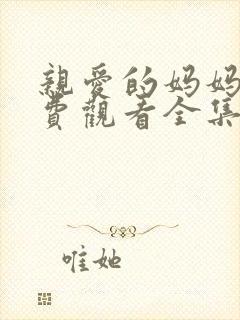 親愛的妈妈
費觀看全集
唯她